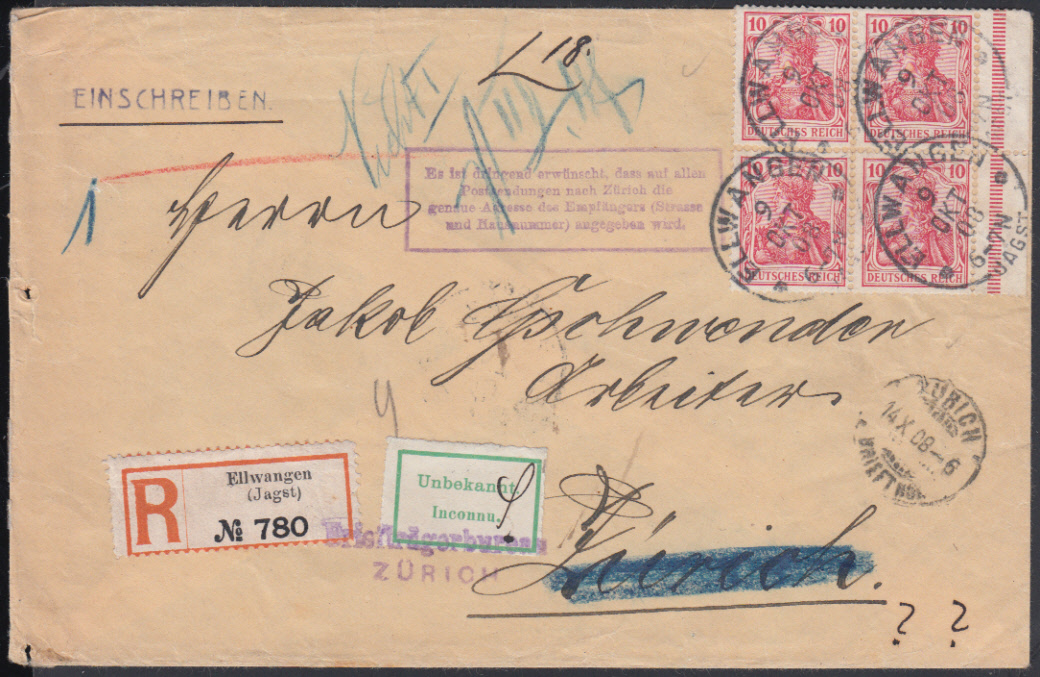 L 18.
EINSCHREIBEN.
10 10 10 10
DEUTSCHES REICH DEUTSCHES REICH
10 10 10 10
DEUTSCHES REICH DEUTSCHES REICH
ELLWANGEN
9
OKT
08
6-7N
JAGST
Es ist dringend erwünscht, dass auf allen
Postsendungen nach Zürich die
genaue Adresse des Empfängers (Strasse
und Hausnummer) angegeben wird.
1
Herrn
Jakob Gschwender
Arbeiter
ZÜRICH
14.X.08-6
Ellwangen
(Jagst)
R
№ 780
Unbekannt
Inconnu.
Briefträgerbureau
ZÜRICH
Zürich.
? ?